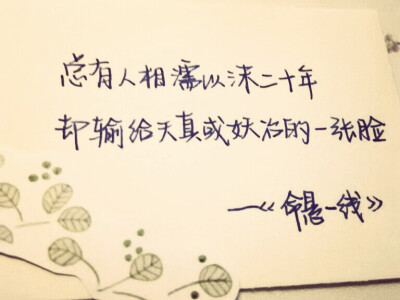 总有人相濡以沫二十年
却输给天真或妖冶的一张脸
——《命悬一线》